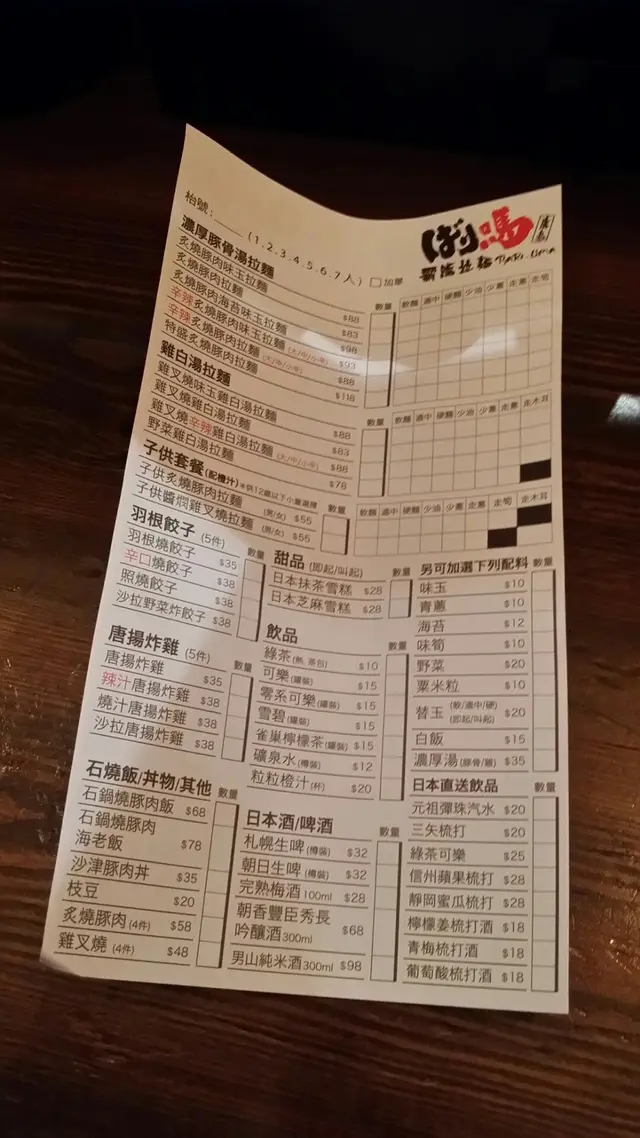 枱號：____ (1.2.3.4.5.6.7人) □加單
ばり馬
廣島
霸嗎拉麵 BARI-UMA
濃厚豚骨湯拉麵 數量 軟麵 適中 硬麵 少油 少蔥 走蔥 走筍
炙燒豚肉味玉拉麵 $88
炙燒豚肉拉麵 $83
炙燒豚肉海苔味玉拉麵 $98
辛辣炙燒豚肉味玉拉麵 (大/中/小辛) $93
辛辣炙燒豚肉拉麵 (大/中/小辛) $88
特盛炙燒豚肉拉麵 $118
雞白湯拉麵 數量 軟麵 適中 硬麵 少油 少蔥 走蔥 走木耳
雞叉燒味玉雞白湯拉麵 $88
雞叉燒雞白湯拉麵 $83
雞叉燒辛辣雞白湯拉麵 (大/中/小辛) $88
野菜雞白湯拉麵 $78
子供套餐 (配橙汁) ※供12歲以下小童選擇 數量 軟麵 適中 硬麵 少油 少蔥 走蔥 走筍 走木耳
子供炙燒豚肉拉麵 (男/女) $55
子供醬燜雞叉燒拉麵 (男/女) $55
羽根餃子 (5件) 數量
羽根燒餃子 $35
辛口燒餃子 $38
照燒餃子 $38
沙拉野菜炸餃子 $38
唐揚炸雞 (5件) 數量
唐揚炸雞 $35
辣汁唐揚炸雞 $38
燒汁唐揚炸雞 $38
沙拉唐揚炸雞 $38
石燒飯/丼物/其他 數量
石鍋燒豚肉飯 $68
石鍋燒豚肉
海老飯 $78
沙津豚肉丼 $35
枝豆 $20
炙燒豚肉 (4件) $58
雞叉燒 (4件) $48
甜品 (即起/叫起) 數量
日本抹茶雪糕 $28
日本芝麻雪糕 $28
飲品 數量
綠茶 (熱, 茶包) $10
可樂 (罐裝) $15
零系可樂 (罐裝) $15
雪碧 (罐裝) $15
雀巢檸檬茶 (罐裝) $15
礦泉水 (樽裝) $12
粒粒橙汁 (杯) $20
日本酒/啤酒 數量
札幌生啤 (樽裝) $32
朝日生啤 (樽裝) $32
完熟梅酒 100ml $28
朝香豐臣秀長
吟釀酒 300ml $68
男山純米酒 300ml $98
另可加選下列配料 數量
味玉 $10
青蔥 $10
海苔 $12
味筍 $10
野菜 $20
粟米粒 $10
替玉 (軟/適中/硬) (即起/叫起) $20
白飯 $15
濃厚湯 (豚骨/雞) $35
日本直送飲品 數量
元祖彈珠汽水 $20
三矢梳打 $20
綠茶可樂 $25
信州蘋果梳打 $28
靜岡蜜瓜梳打 $28
檸檬姜梳打酒 $18
青梅梳打酒 $18
葡萄酸梳打酒 $18